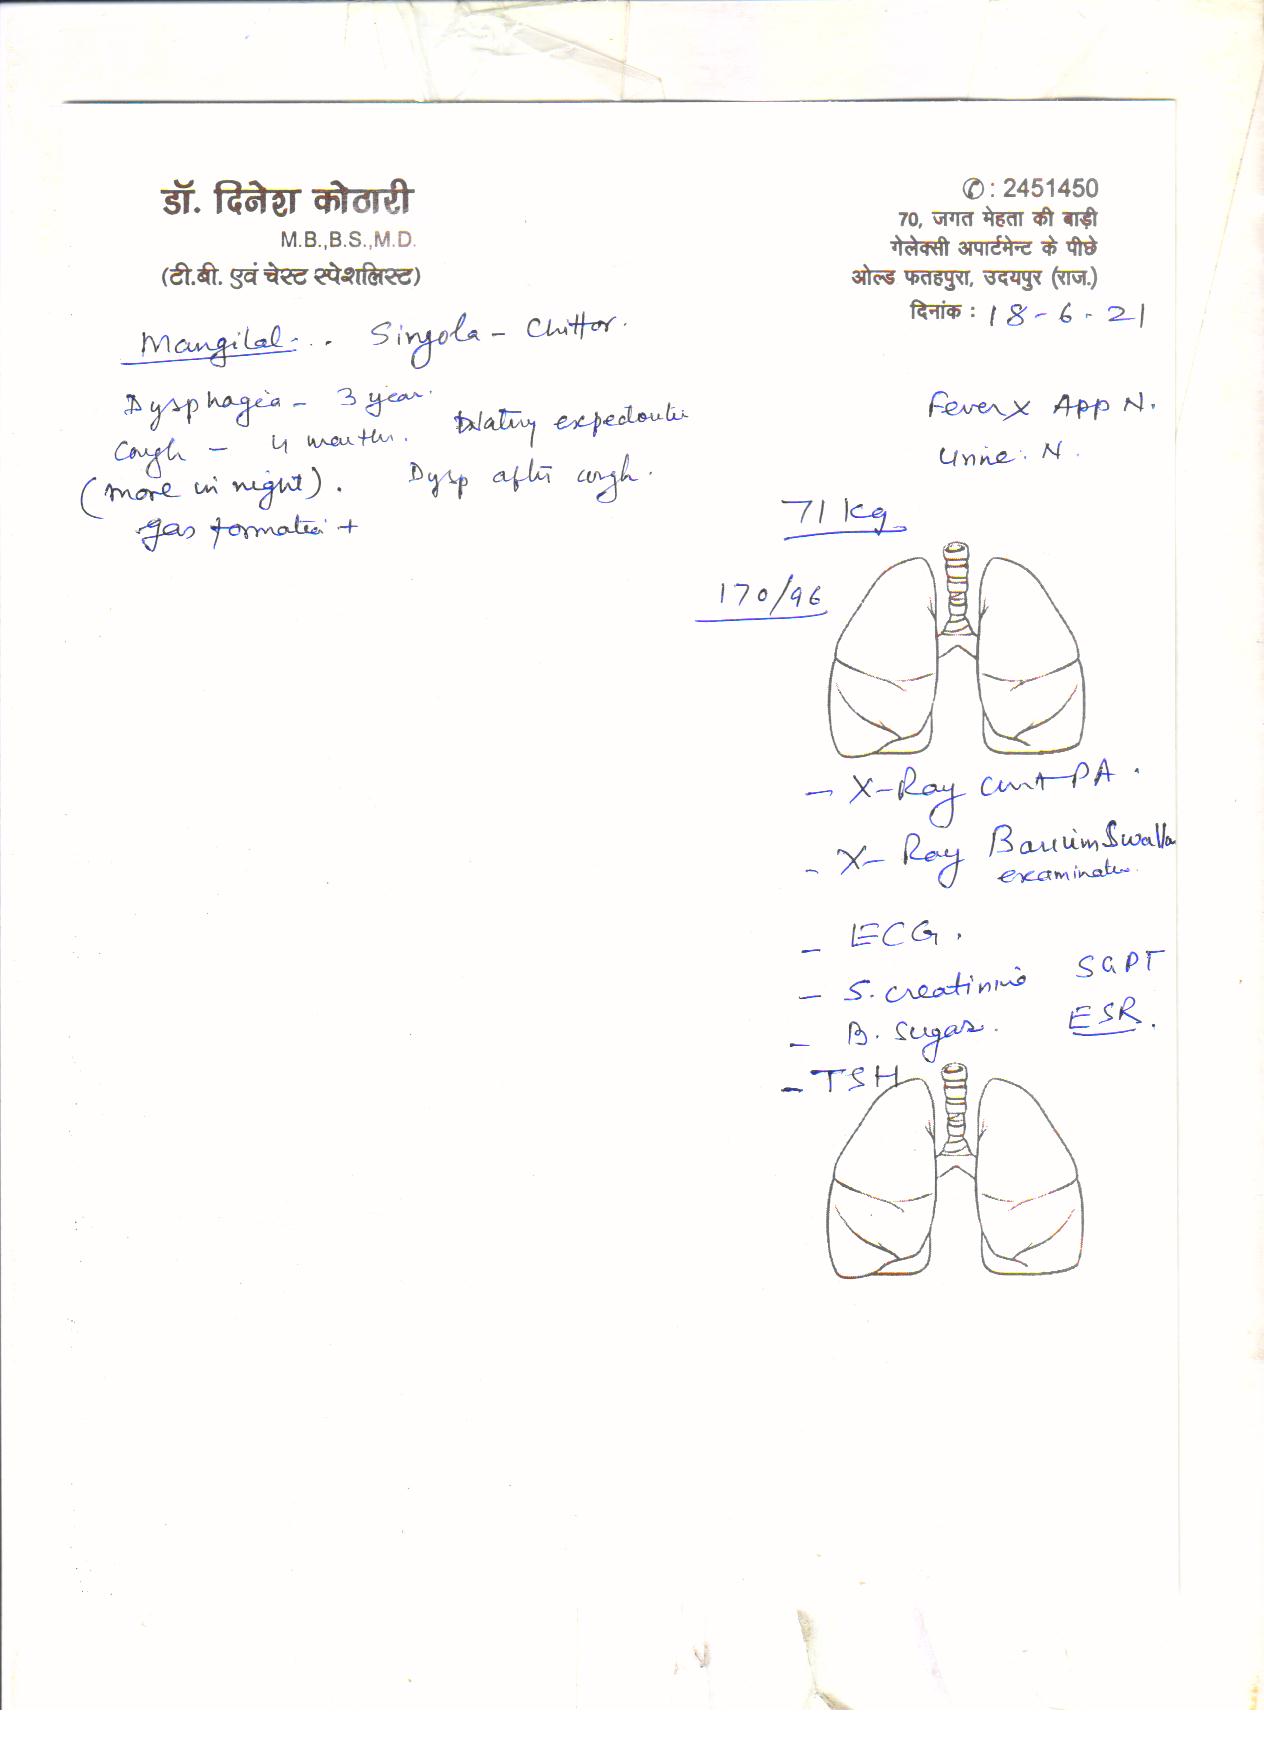 डॉ. दिनेश कोठारी
M.B.,B.S.,M.D.
(टी.बी. एवं चेस्ट स्पेशलिस्ट)
✆: 2451450
70, जगत मेहता की बाड़ी
गेलेक्सी अपार्टमेन्ट के पीछे
ओल्ड फतहपुरा, उदयपुर (राज.)
दिनांक : 18-6-21
Mangilal - Singola - Chittor.
Dysphagia - 3 year.
Cough - 4 months. Watery expectoration
(more in night). Dysp after cough.
gas formation +
Fever X App N.
Urine. N.
71 kg
170/96
- X-Ray chest PA.
- X-Ray Barium Swallow
examination
- ECG.
- S. creatinine SGPT
- B. sugar. ESR.
- TSH